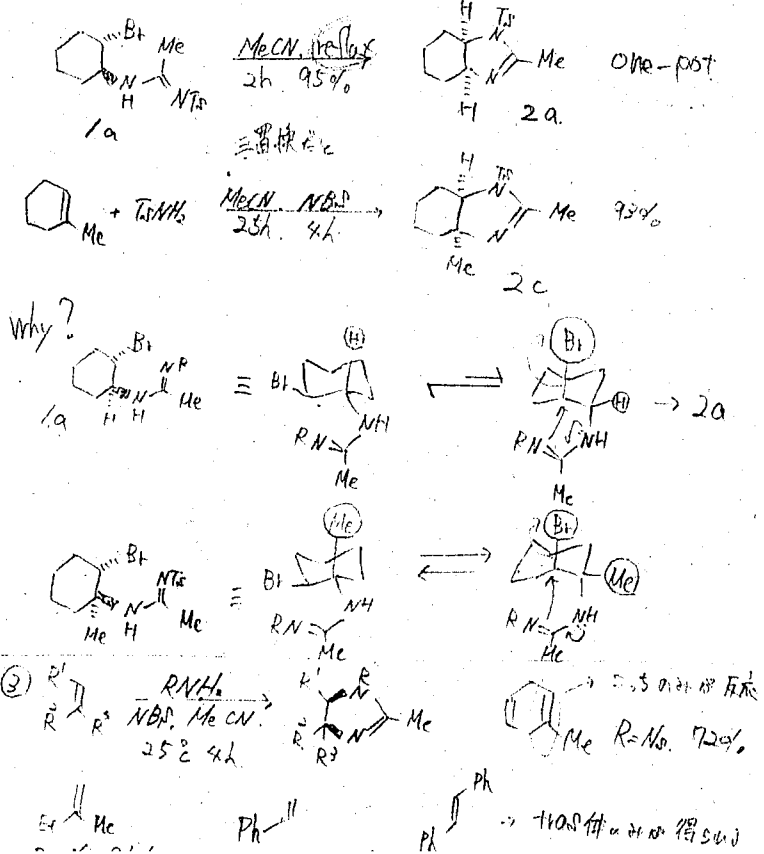 Br
Me
N
H
NTs
1a
MeCN. reflux
2h 95%
H
Ts
N
N
Me
H
2a.
one-pot
三置換だと
Me
+ TsNH₂
MeCN. NBS
25h. 4h.
H
Ts
N
N
Me
Me
2c
93%
Why?
Br
NR
N
H
H
Me
1a
≡
H
Br
NH
RN
Me
Br
H
RN
NH
Me
→ 2a
Br
NTs
N
H
Me
Me
≡
Me
Br
NH
RN
Me
Br
Me
RN
NH
Me
③
R¹
R²
R³
RNH₂
NBS. MeCN.
25℃ 4h
R¹
R²
R³
R
N
N
Me
Me
→
反応
R=Ns. 72%
Et
Me
Ph
Ph
Ph